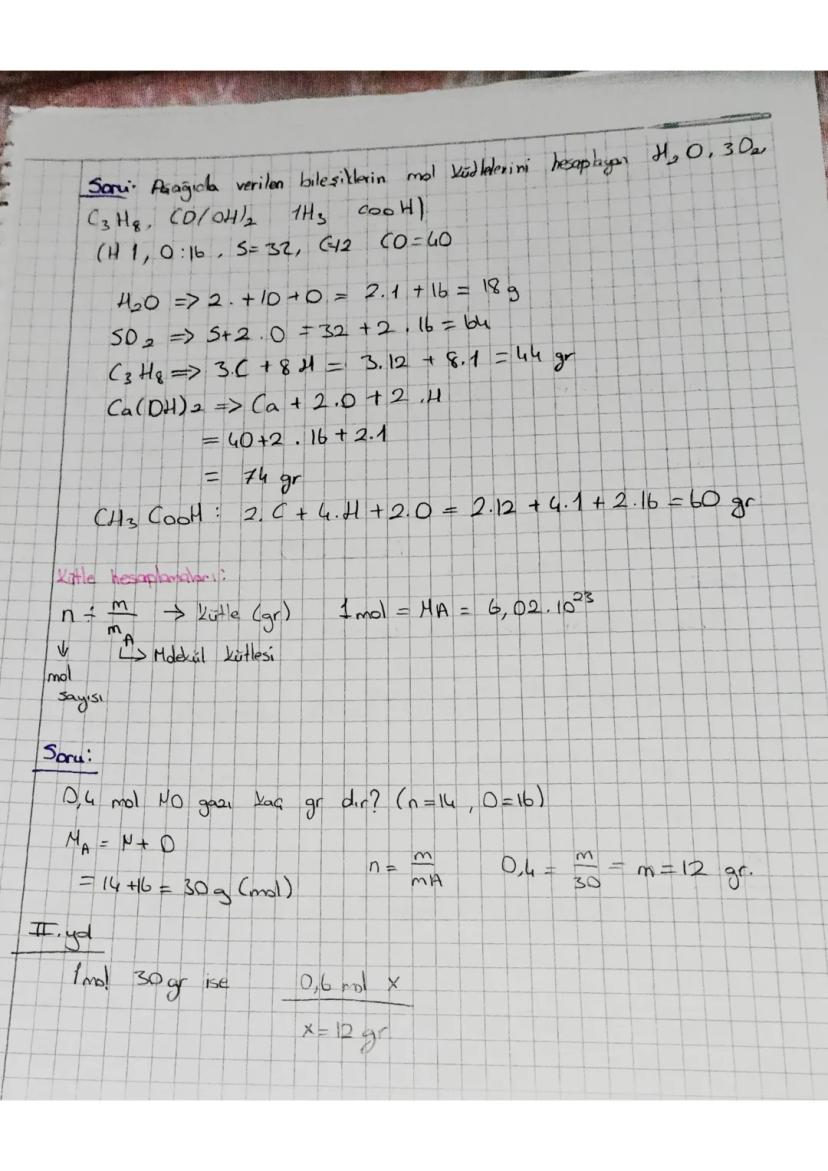 Soru: Aşağıda verilen bileşiklerin mol kütlelerini hesaplayın H₂O, 3O₂,
C₃H₈, CO(OH)₂ 1H₃ COOH)
(H 1, O:16, S=32, C=12 CO=40
H₂O => 2. +10+0 = 2.1 +16 = 18 g
SO₂ => S+2.O =32 +2.16 = 64
C₃H₈ => 3.C + 8H = 3.12 + 8.1 = 44 gr
Ca(OH)₂ => Ca + 2.O + 2.H
= 40+2.16+2.1
= 74 gr
CH₃ CooH : 2.C + 4.H + 2.O = 2.12 + 4.1 + 2.16 = 60 gr
Kütle hesaplamaları:
n = m/mA → kütle (gr) 1 mol = NA = 6,02.10²³
↓ ↳ Molekül kütlesi
mol
sayısı
Soru:
0,4 mol NO gazı kaç gr dır? (n=14, O=16)
MA = N + O
= 14+16 = 30 g (mol) n = m/mA 0,4 = m/30 = m=12 gr.
II. yol
1 mol 30 gr ise 0,6 mol x
x = 12 gr.